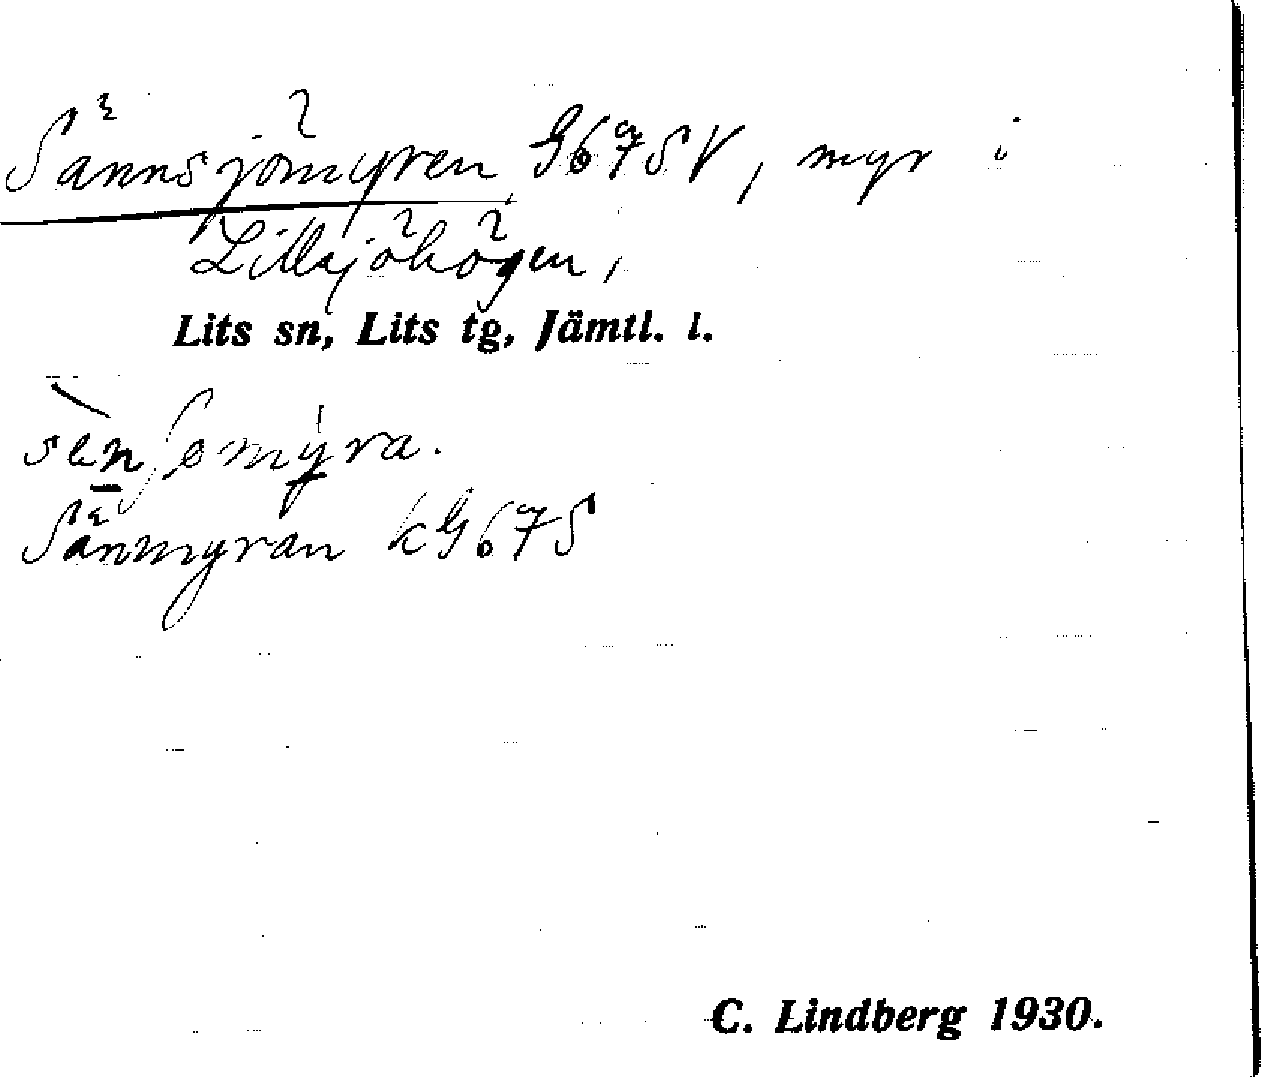 Sännsjömyren G67SV, myr i
Lillsjöhögen,
Lits sn, Lits tg, Jämtl. l.
sènʃomyra.
Sänmyran kG67S
C. Lindberg 1930.